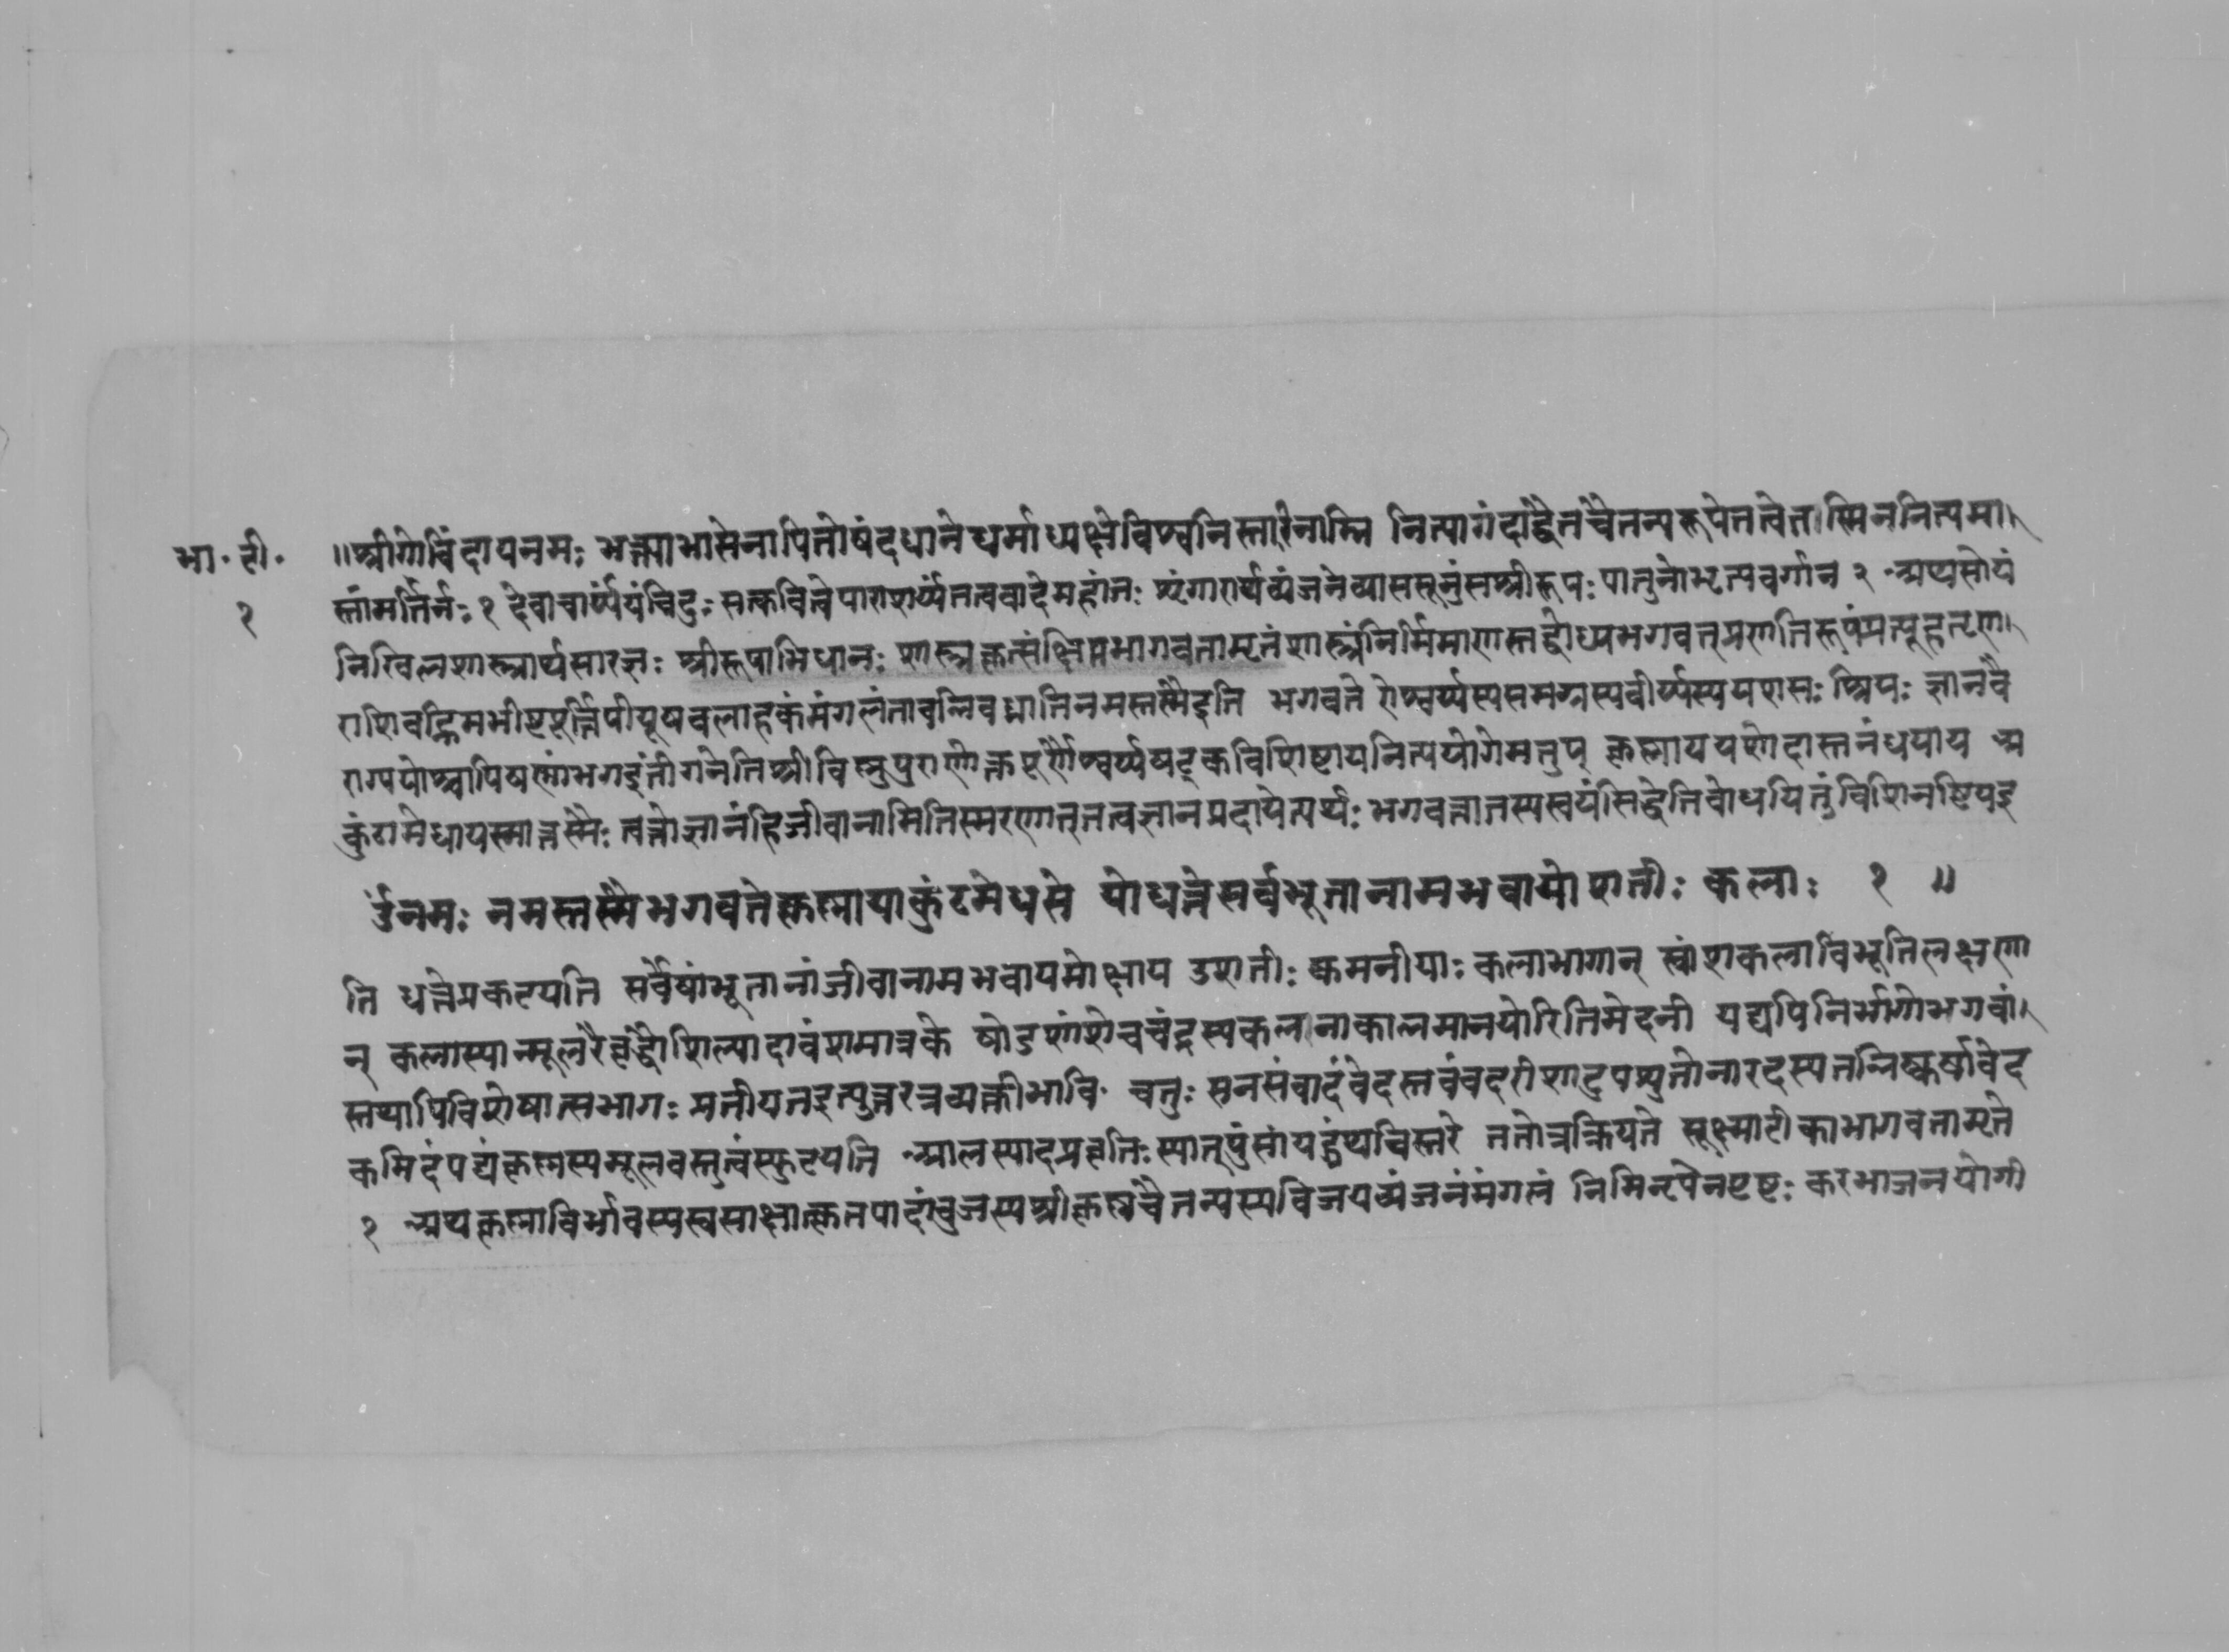 भा॰ टी॰
१
॥श्रीगोविंदायनमः भक्त्याभासेनापितोषंदधाने धर्माध्यक्षेविश्वनिस्तारिनाम्नि नित्यानंदाद्वैतचैतन्यरूपेतत्वेतस्मिन्नित्यमा
स्तांमतिर्नः १ देवाचार्य्यंयंविदुः सत्कवित्वेपाराशर्य्यंतत्ववादेमहांतः शृंगारार्थव्यंजनेव्याससूनुंसश्रीरूपः पातुनोभृत्यवर्गान २ अथसोयं
निखिलशास्त्रार्थसारज्ञः श्रीरूपाभिधानः शास्त्रकृत्संक्षिप्तभागवतामृतंशास्त्रंनिर्मिमाणस्तद्बोध्यभगवत्प्रणतिरूपंप्रत्यूहतृण
राशिवह्निमभीष्टपूर्त्तिपीयूषवलाहकंमंगलंतावन्निवध्नातिनमस्तस्मैइति भगवते ऐश्वर्य्यस्यसमग्रस्यवीर्य्यस्ययशसः श्रियः ज्ञानवै
राग्ययोश्चापिषण्णांभगइतींगनेतिश्रीविष्णुपुराणोक्तपूर्णैश्वर्य्यषट्कविशिष्टायनित्ययोगेमतुप् कृष्णाययशोदास्तनंधयाय अ
कुंठामेधायस्मात्तस्मैः त्वत्तोज्ञानंहिजीवानामितिस्मरणात्तत्वज्ञानप्रदायेत्यर्थः भगवत्तातस्यस्वयंसिद्धेतिवोधयितुंविशिनष्टियइ
ॐनमः नमस्तस्मैभगवतेकृष्णायाकुंठमेधसे योधत्तेसर्वभूतानामभवायोशतीः कलाः १ ॥
ति धत्तेप्रकटयति सर्वेषांभूतानांजीवानामभवायमोक्षाय उशतीः कमनीयाः कलाभागान् स्वांशकलाविभूतिलक्षणा
न् कलास्यान्मूलरैवृद्धौशिल्पादावंशमात्रके षोडशांशेचचंद्रस्यकलनाकालमानयोरितिमेदनी यद्यपिनिर्भागोभगवां
स्तथापिविशेषात्सभागः प्रतीयतइत्युत्तरत्रव्यक्तीभावि चतुः सनसंवादंवेदस्तवंवदरीशादुपश्रुतोनारदस्यतन्निष्कर्षावेद
कमिदंपद्यंकृष्णस्यमूलवस्तुत्वंस्फुटयति आलस्यादप्रवृत्तिः स्यात्पुंसांयद्ग्रंथविस्तरे ततोत्रक्रियते सूक्ष्माटीकाभागवतामृते
१ अथकृष्णाविर्भावस्यस्वसाक्षात्कृतपादांवुजस्यश्रीकृष्णचैतन्यस्यविजयव्यंजनंमंगलं निमिनृपेनपृष्टः करभाजनयोगी